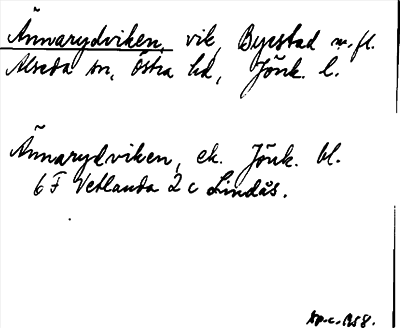 Ännarydviken, vik, Byestad m. fl.
Alseda sn, Östra hd, Jönk. l.
Ännarydviken, ek. Jönk. bl.
6 F Vetlanda 2 c Lindås.
1958.